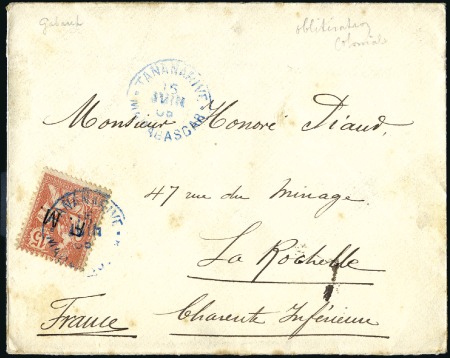 oblitération
Coloniale
TANANARIVE
15
JUIN
05
MADAGASCAR
Monsieur Honoré Diaud,
47 rue du Minage.
La Rochelle
France Charente Inférieure
15
M